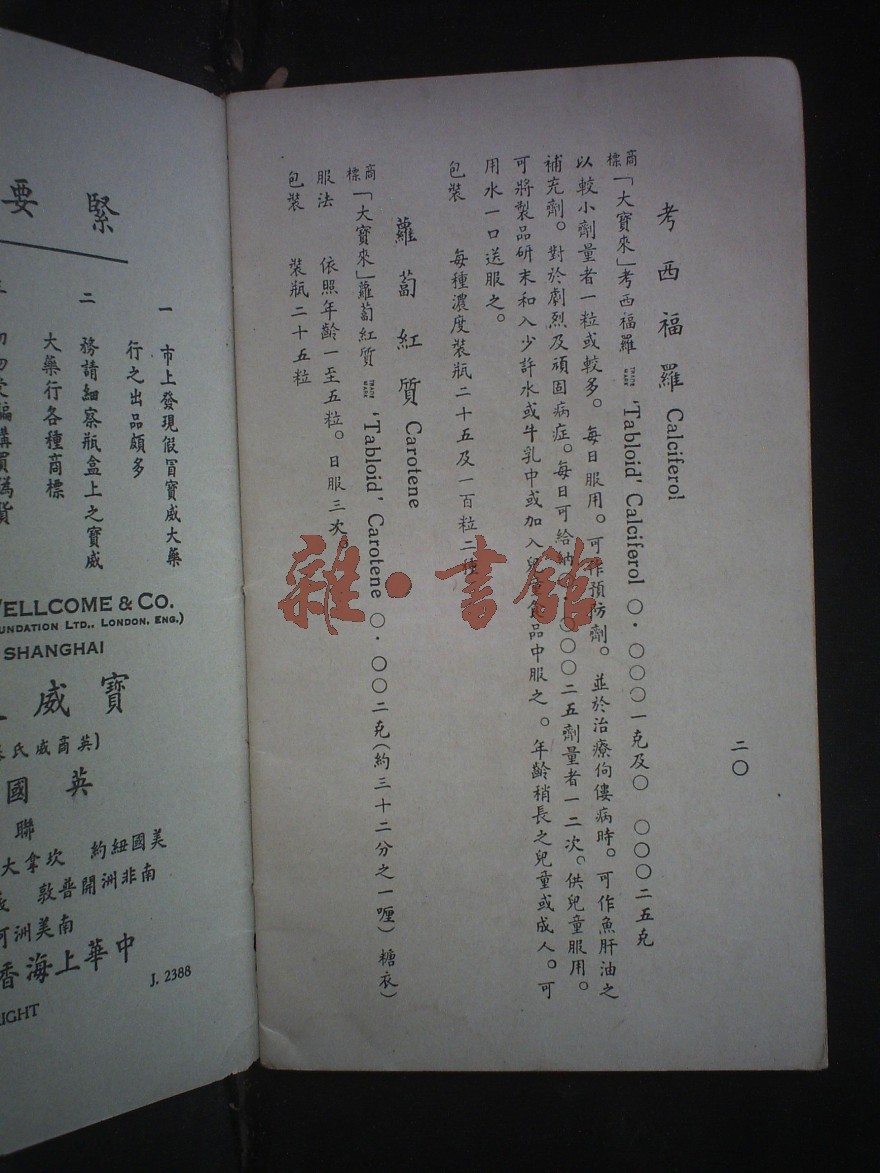 二〇
考西福羅 Calciferol
商標「大寶來」考西福羅 TRADE MARK 'Tabloid' Calciferol 〇·〇〇〇一克及〇 〇〇〇二五克
以較小劑量者一粒或較多。每日服用。可作預防劑。並於治療佝僂病時。可作魚肝油之
補充劑。對於劇烈及頑固病症。每日可給 〇〇〇二五劑量者一二次。供兒童服用。
可將製品研末和入少許水或牛乳中或加入兒童食品中服之。年齡稍長之兒童或成人。可
用水一口送服之。
包裝 每種濃度裝瓶二十五及一百粒二種
蘿蔔紅質 Carotene
商標「大寶來」蘿蔔紅質 TRADE MARK 'Tabloid' Carotene 〇·〇〇二克(約三十二分之一喱)糖衣)
服法 依照年齡一至五粒。日服三次。
包裝 裝瓶二十五粒
緊要
一 市上發現假冒寶威大藥
行之出品頗多
二 務請細察瓶盒上之寶威
大藥行各種商標
WELLCOME & CO.
UNDATION LTD., LONDON, ENG.)
SHANGHAI
寶威
(英商威氏
英國
聯
美國紐約 坎拿大
南非洲開普敦
南美洲阿
中華上海香
J. 2388
IGHT
雜·書館